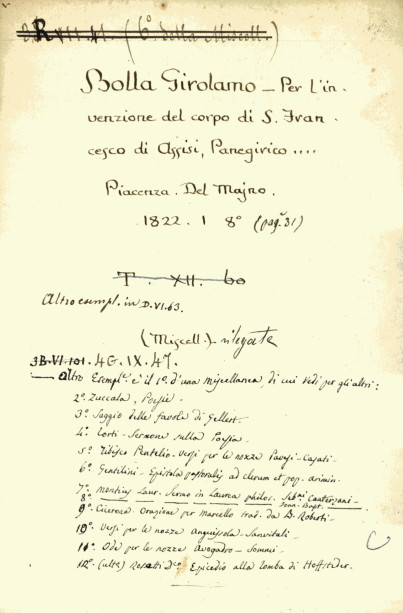 R XII. 41. (6º. della Miscell.)
Bolla Girolamo – Per l'in-
venzione del corpo di S. Fran-
cesco di Assisi, Panegirico....
Piacenza. Del Majno.
1822. 1 8º (pag. 31)
T. XII. 60
Altro esempl. in D.VI.63.
(Miscell.) rilegate
3B.VI.101. 4G.IX.47.
Altro Esempl.e è il 1º. d'una miscellanea, di cui vedi per gli altri:
2º. Zuccala, Poesie -
3º. Saggio delle favole di Gellert.
4º. Torti - Sermone sulla Poesia -
5º. Tibisco Pentelio - Versi per le nozze Pavesi - Casati -
6º. Gentilini - Epistola pastoralis ad clerum et pop. arimin.
7º. Montius Laur. Sermo in Laurea philos.
8º.
9º. Cicerone Orazione per Marcello trad. da D. Roberti -
10º. Versi per le nozze Anguissola - Sanvitali -
11º. Ode per le nozze Avogadro - Sommi -
12º. (ult.) Rosatti Epicedio alla tomba di